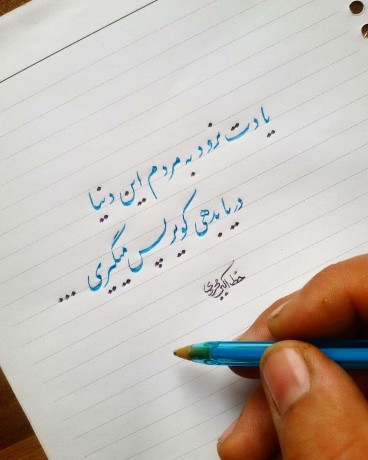 یادت نرود به مردم این دنیا
دریا بدهی کویر پس میگیری ...